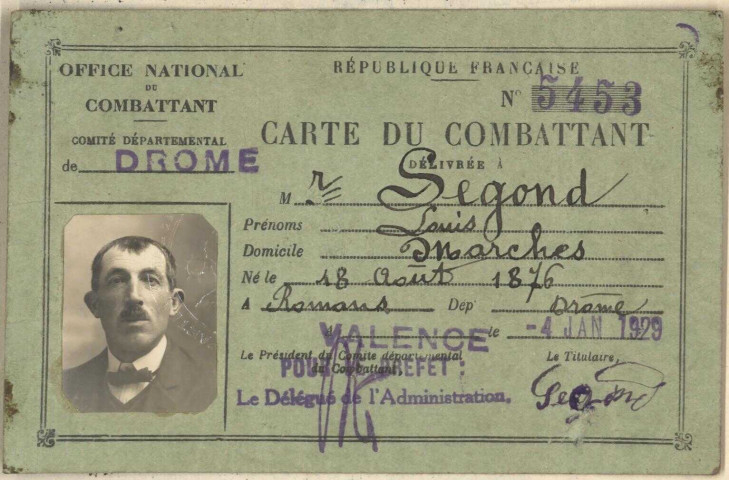 OFFICE NATIONAL
DU
COMBATTANT
COMITÉ DÉPARTEMENTAL
de DROME
RÉPUBLIQUE FRANÇAISE
N° 5453
CARTE DU COMBATTANT
DÉLIVRÉE À
M r Segond
Prénoms Louis
Domicile Marches
Né le 18 Août 1876
A Romans Dep Drôme
VALENCE le -4 JAN 1929
Le Président du Comité départemental
du Combattant,
POUR LE PREFET :
Le Délégué de l'Administration,
Le Titulaire,
Segond